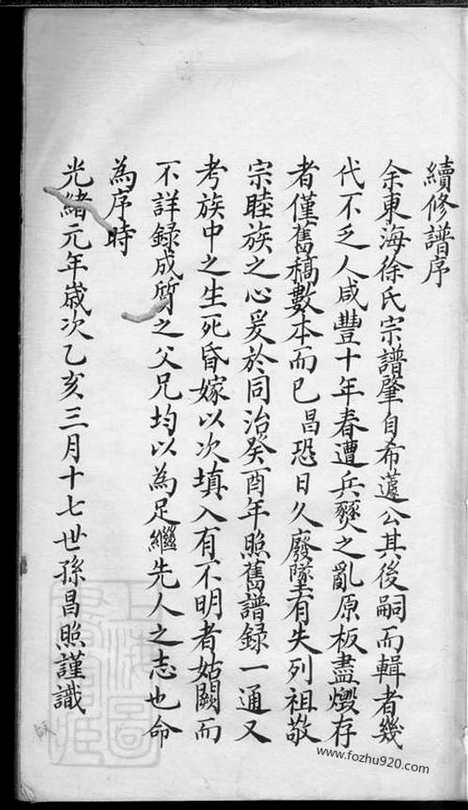 續修譜序
余東海徐氏宗譜肇自希蘧公其後嗣而輯者幾
代不乏人咸豐十年春遭兵燹之亂原板盡燬存
者僅舊稿數本而已昌恐日久廢墜有失列祖敬
宗睦族之心爰於同治癸酉年照舊譜録一通又
考族中之生死昏嫁以次填入有不明者姑闕而
不詳録成質之父兄均以為足繼先人之志也命
為序時
光緒元年歲次乙亥三月十七世孫昌照謹識
www.fozhu920.com